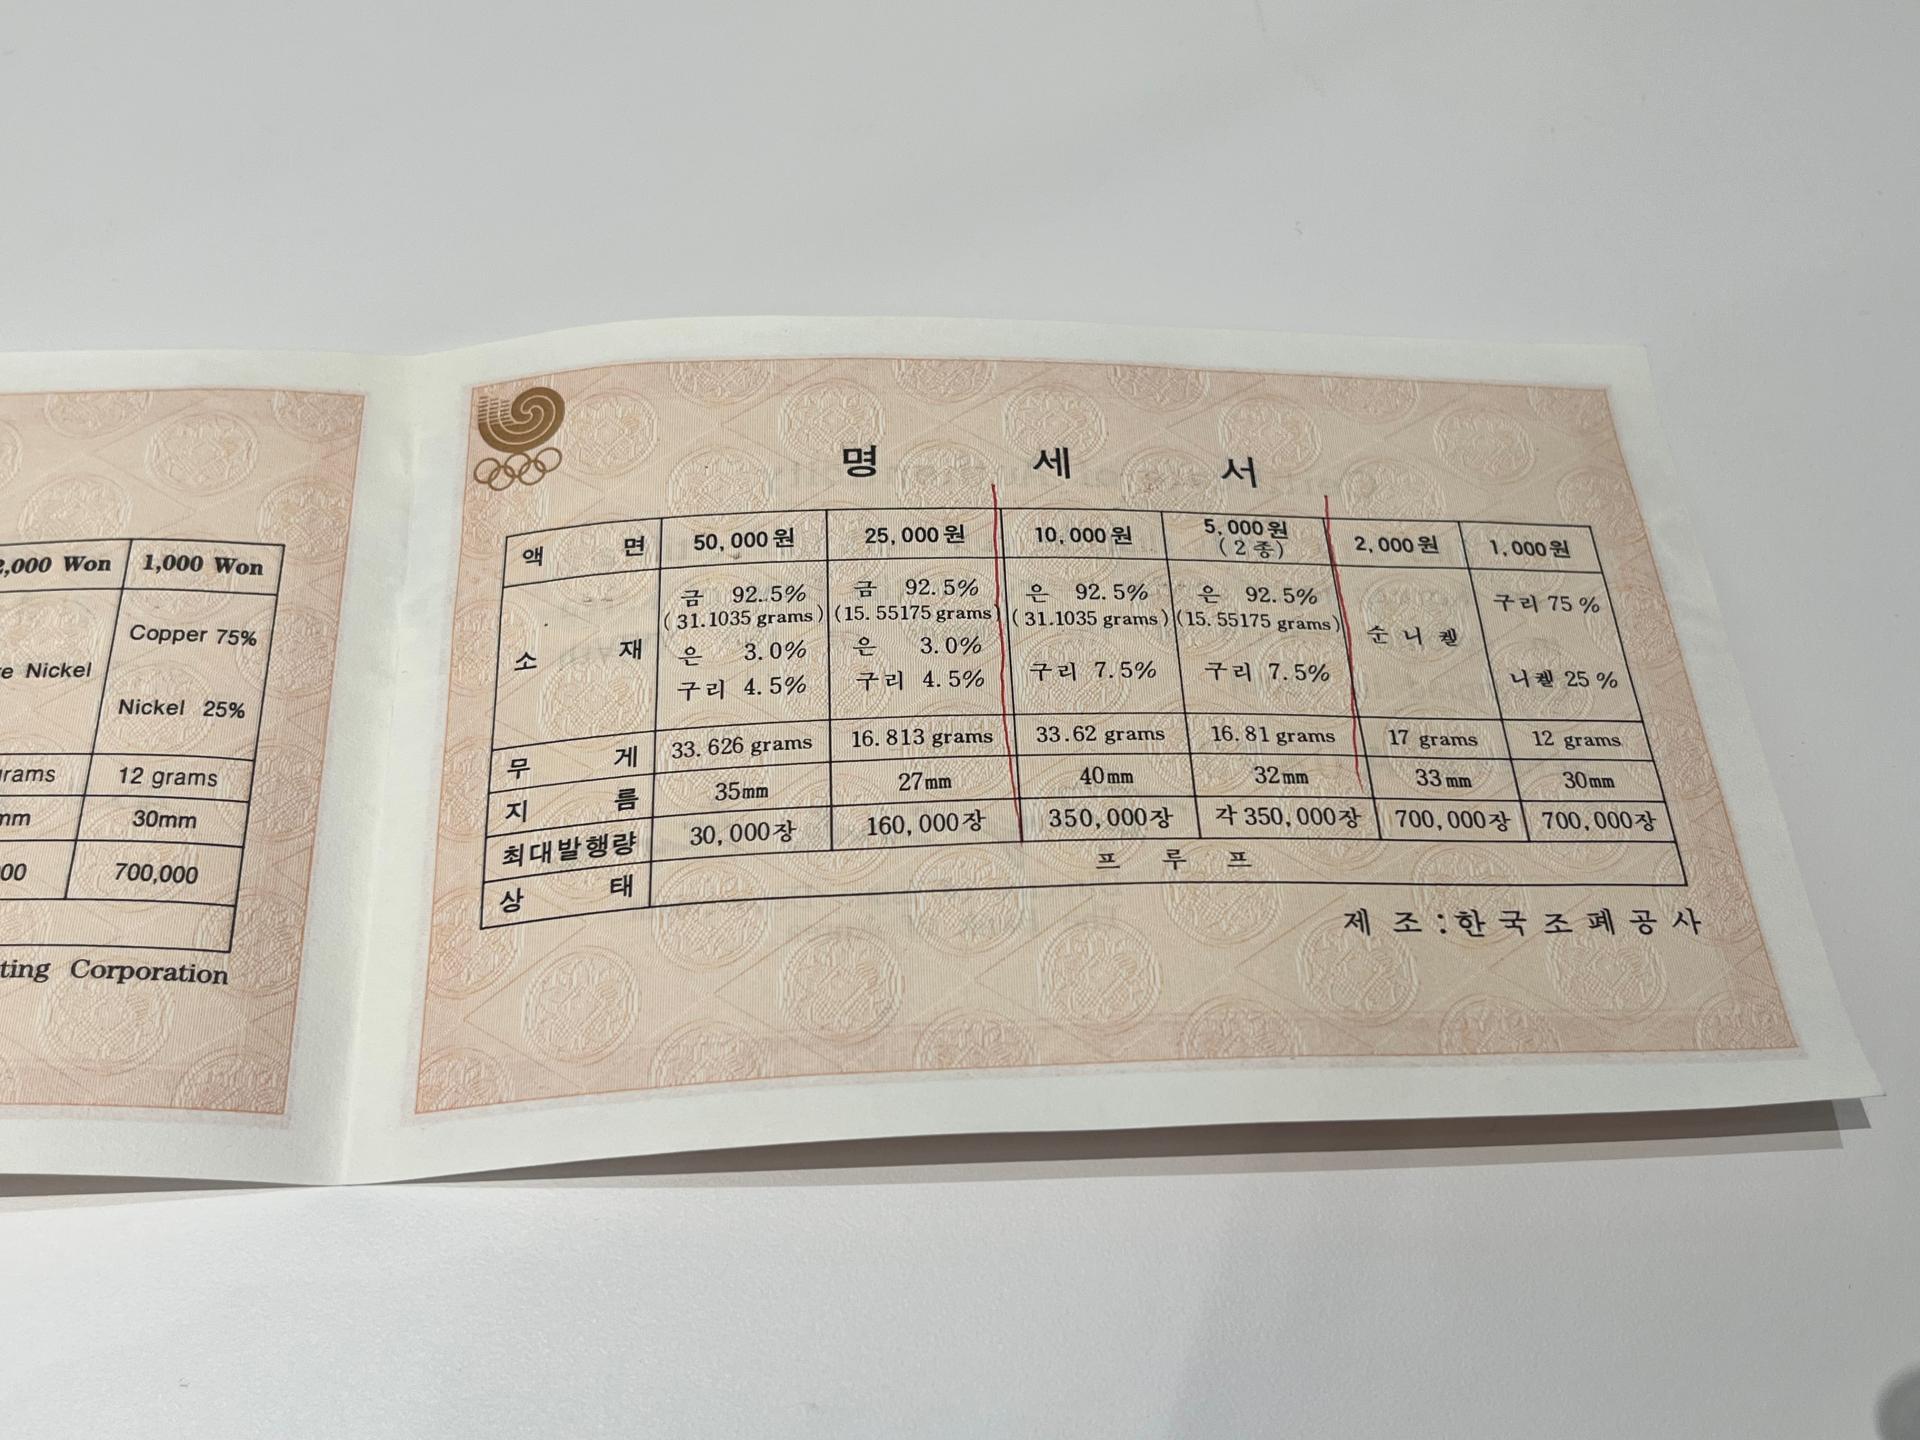 2,000 Won 1,000 Won
Copper 75%
e Nickel
Nickel 25%
rams 12 grams
mm 30mm
00 700,000
ting Corporation
명 세 서
액 면 50,000원 25,000원 10,000원 5,000원 (2종) 2,000원 1,000원
소 재
금 92.5%
(31.1035 grams)
은 3.0%
구리 4.5%
금 92.5%
(15.55175 grams)
은 3.0%
구리 4.5%
은 92.5%
(31.1035 grams)
구리 7.5%
은 92.5%
(15.55175 grams)
구리 7.5%
순 니 켈
구리 75%
니켈 25%
무 게 33.626 grams 16.813 grams 33.62 grams 16.81 grams 17 grams 12 grams
지 름 35mm 27mm 40mm 32mm 33mm 30mm
최대발행량 30,000장 160,000장 350,000장 각 350,000장 700,000장 700,000장
상 태 프 루 프
제 조 : 한 국 조 폐 공 사